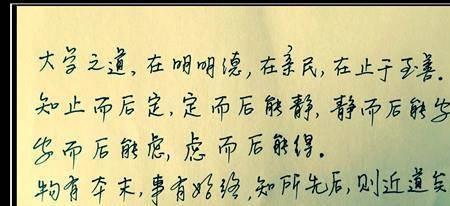 大学之道，在明明德，在亲民，在止于至善。
知止而后定，定而后能静，静而后能安
安而后能虑，虑而后能得。
物有本末，事有始终，知所先后，则近道矣